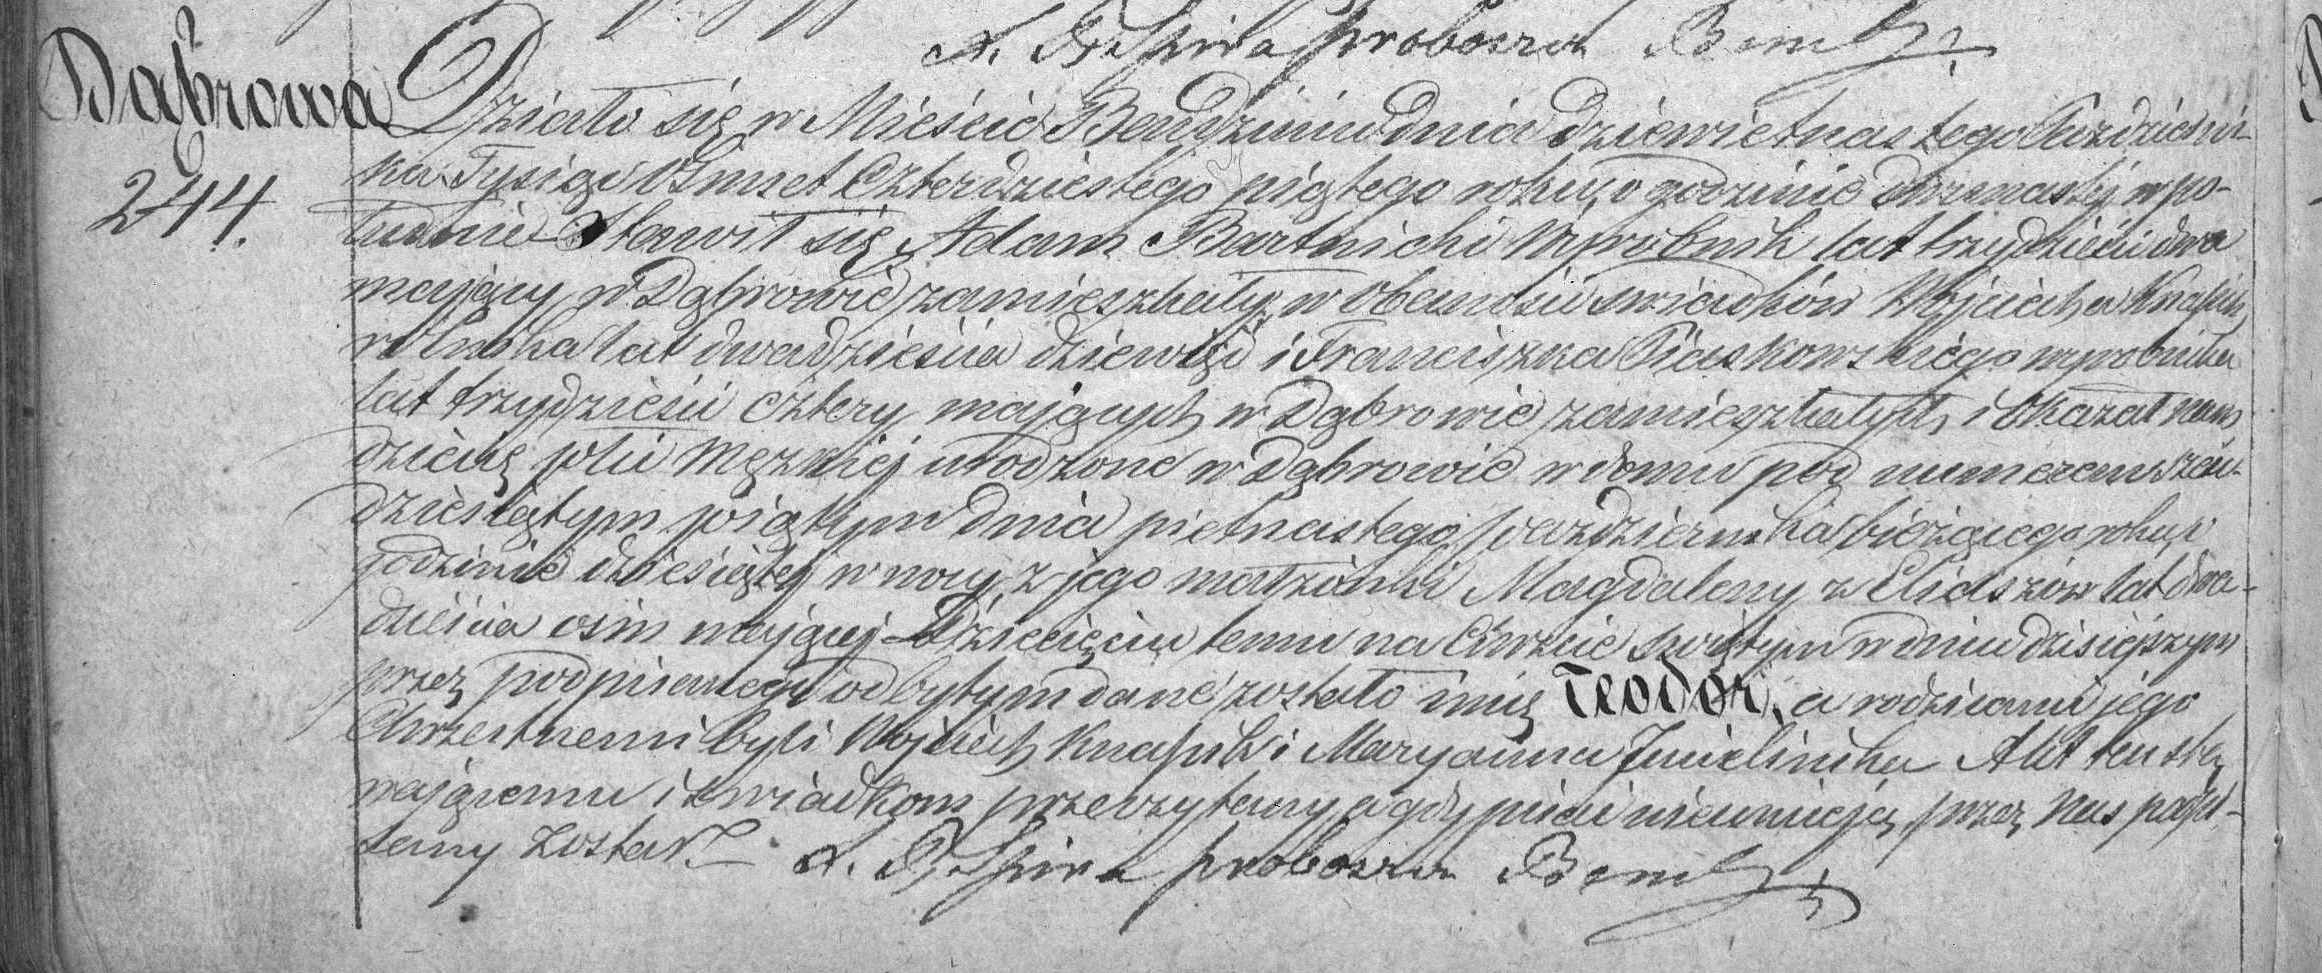 X. Spira proboszcz Bendz:
Dąbrowa
244.
Działo się w Mieście Bendzinie dnia dziewietnastego Pazdzierni-
ka Tysiąc Osmset Czterdziestego piątego roku, o godzinie dwunastej w po-
łudnie Stawił się Adam Bartnicki Wyrobnik lat trzydzieści dwa
mający, w Dąbrowie zamieszkały, w obecności swiadków Wojciecha Knapik
rolnika lat dwadzieścia dziewięć i Franciszka Piaskowskiego wyrobnika
lat trzydzieści cztery mających w Dąbrowie zamieszkałych, i Okazał nam
dziecię płci męzkiej urodzone w Dąbrowie w domu pod numerem sześ-
dziesiątym piątym dnia pietnastego pazdziernika bieżącego roku, o
godzinie dziesiątej w nocy, z jego małzonki Magdaleny z Eliaszów lat dwa-
dzieścia osm mającej Dziecięciu temu na Chrzcie swiętym w dniu dzisiejszym
przez podpisanego odbytym dane zostało imię Teodor, a rodzicami jego
Chrzestnemi byli Wojciech Knapik i Maryanna Akt ten sta-
wającemu i świadkom przeczytany, a gdy pisać nieumieją, przez Nas podpi-
sany został.
X. Spira proboszcz Bendz: